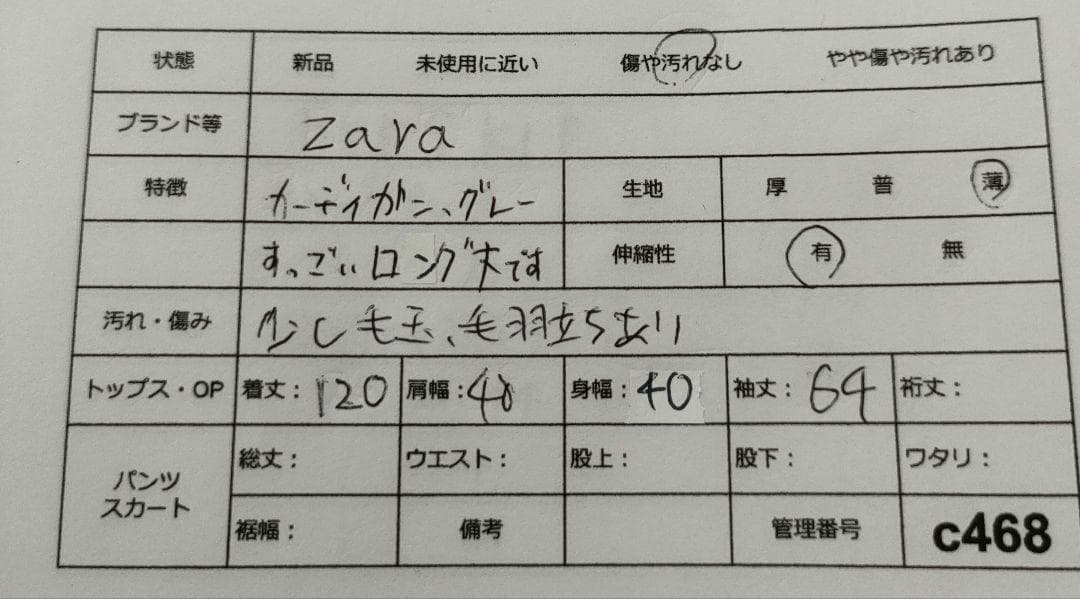 状態 新品 未使用に近い 傷や汚れなし やや傷や汚れあり
ブランド等 zara
特徴 カーディガン、グレー 生地 厚 普 薄
すっごいロング丈です 伸縮性 有 無
汚れ・傷み 少し毛玉、毛羽立ちあり
トップス・OP 着丈：120 肩幅： 身幅：40 袖丈：64 裄丈：
パンツ
スカート
総丈： ウエスト： 股上： 股下： ワタリ：
裾幅： 備考 管理番号 c468